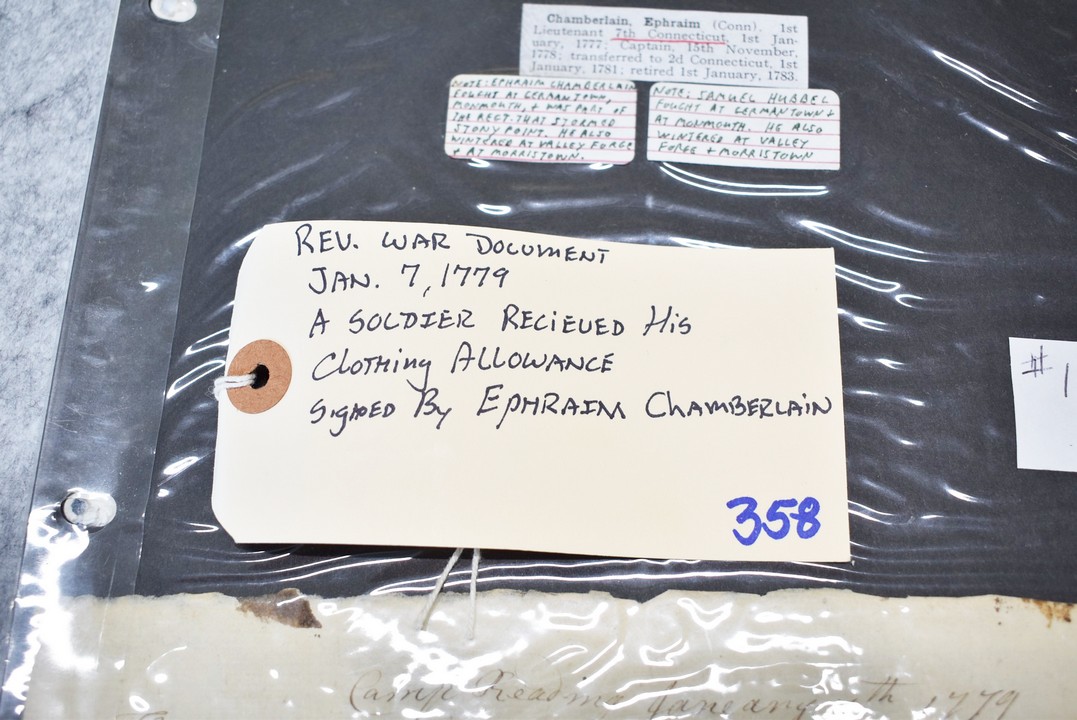 Chamberlain, Ephraim (Conn). 1st
Lieutenant 7th Connecticut, 1st Jan-
uary, 1777; Captain, 15th November,
1778; transferred to 2d Connecticut, 1st
January, 1781; retired 1st January, 1783.
NOTE: EPHRAIM CHAMBERLAIN
FOUGHT AT GERMANTOWN,
MONMOUTH, + WAS PART OF
THE REGT. THAT STORMED
STONY POINT. HE ALSO
WINTERED AT VALLEY FORGE
+ AT MORRISTOWN.
NOTE: SAMUEL HUBBEL
FOUGHT AT GERMANTOWN +
AT MONMOUTH. HE ALSO
WINTERED AT VALLEY
FORGE + MORRISTOWN
REV. WAR DOCUMENT
JAN. 7, 1779
A SOLDIER RECIEVED His
Clothing ALLOWANCE
Signed By EPHRAIM ChAMBERLAiN
358
# 1
Camp Reading Janeary 7th 1779